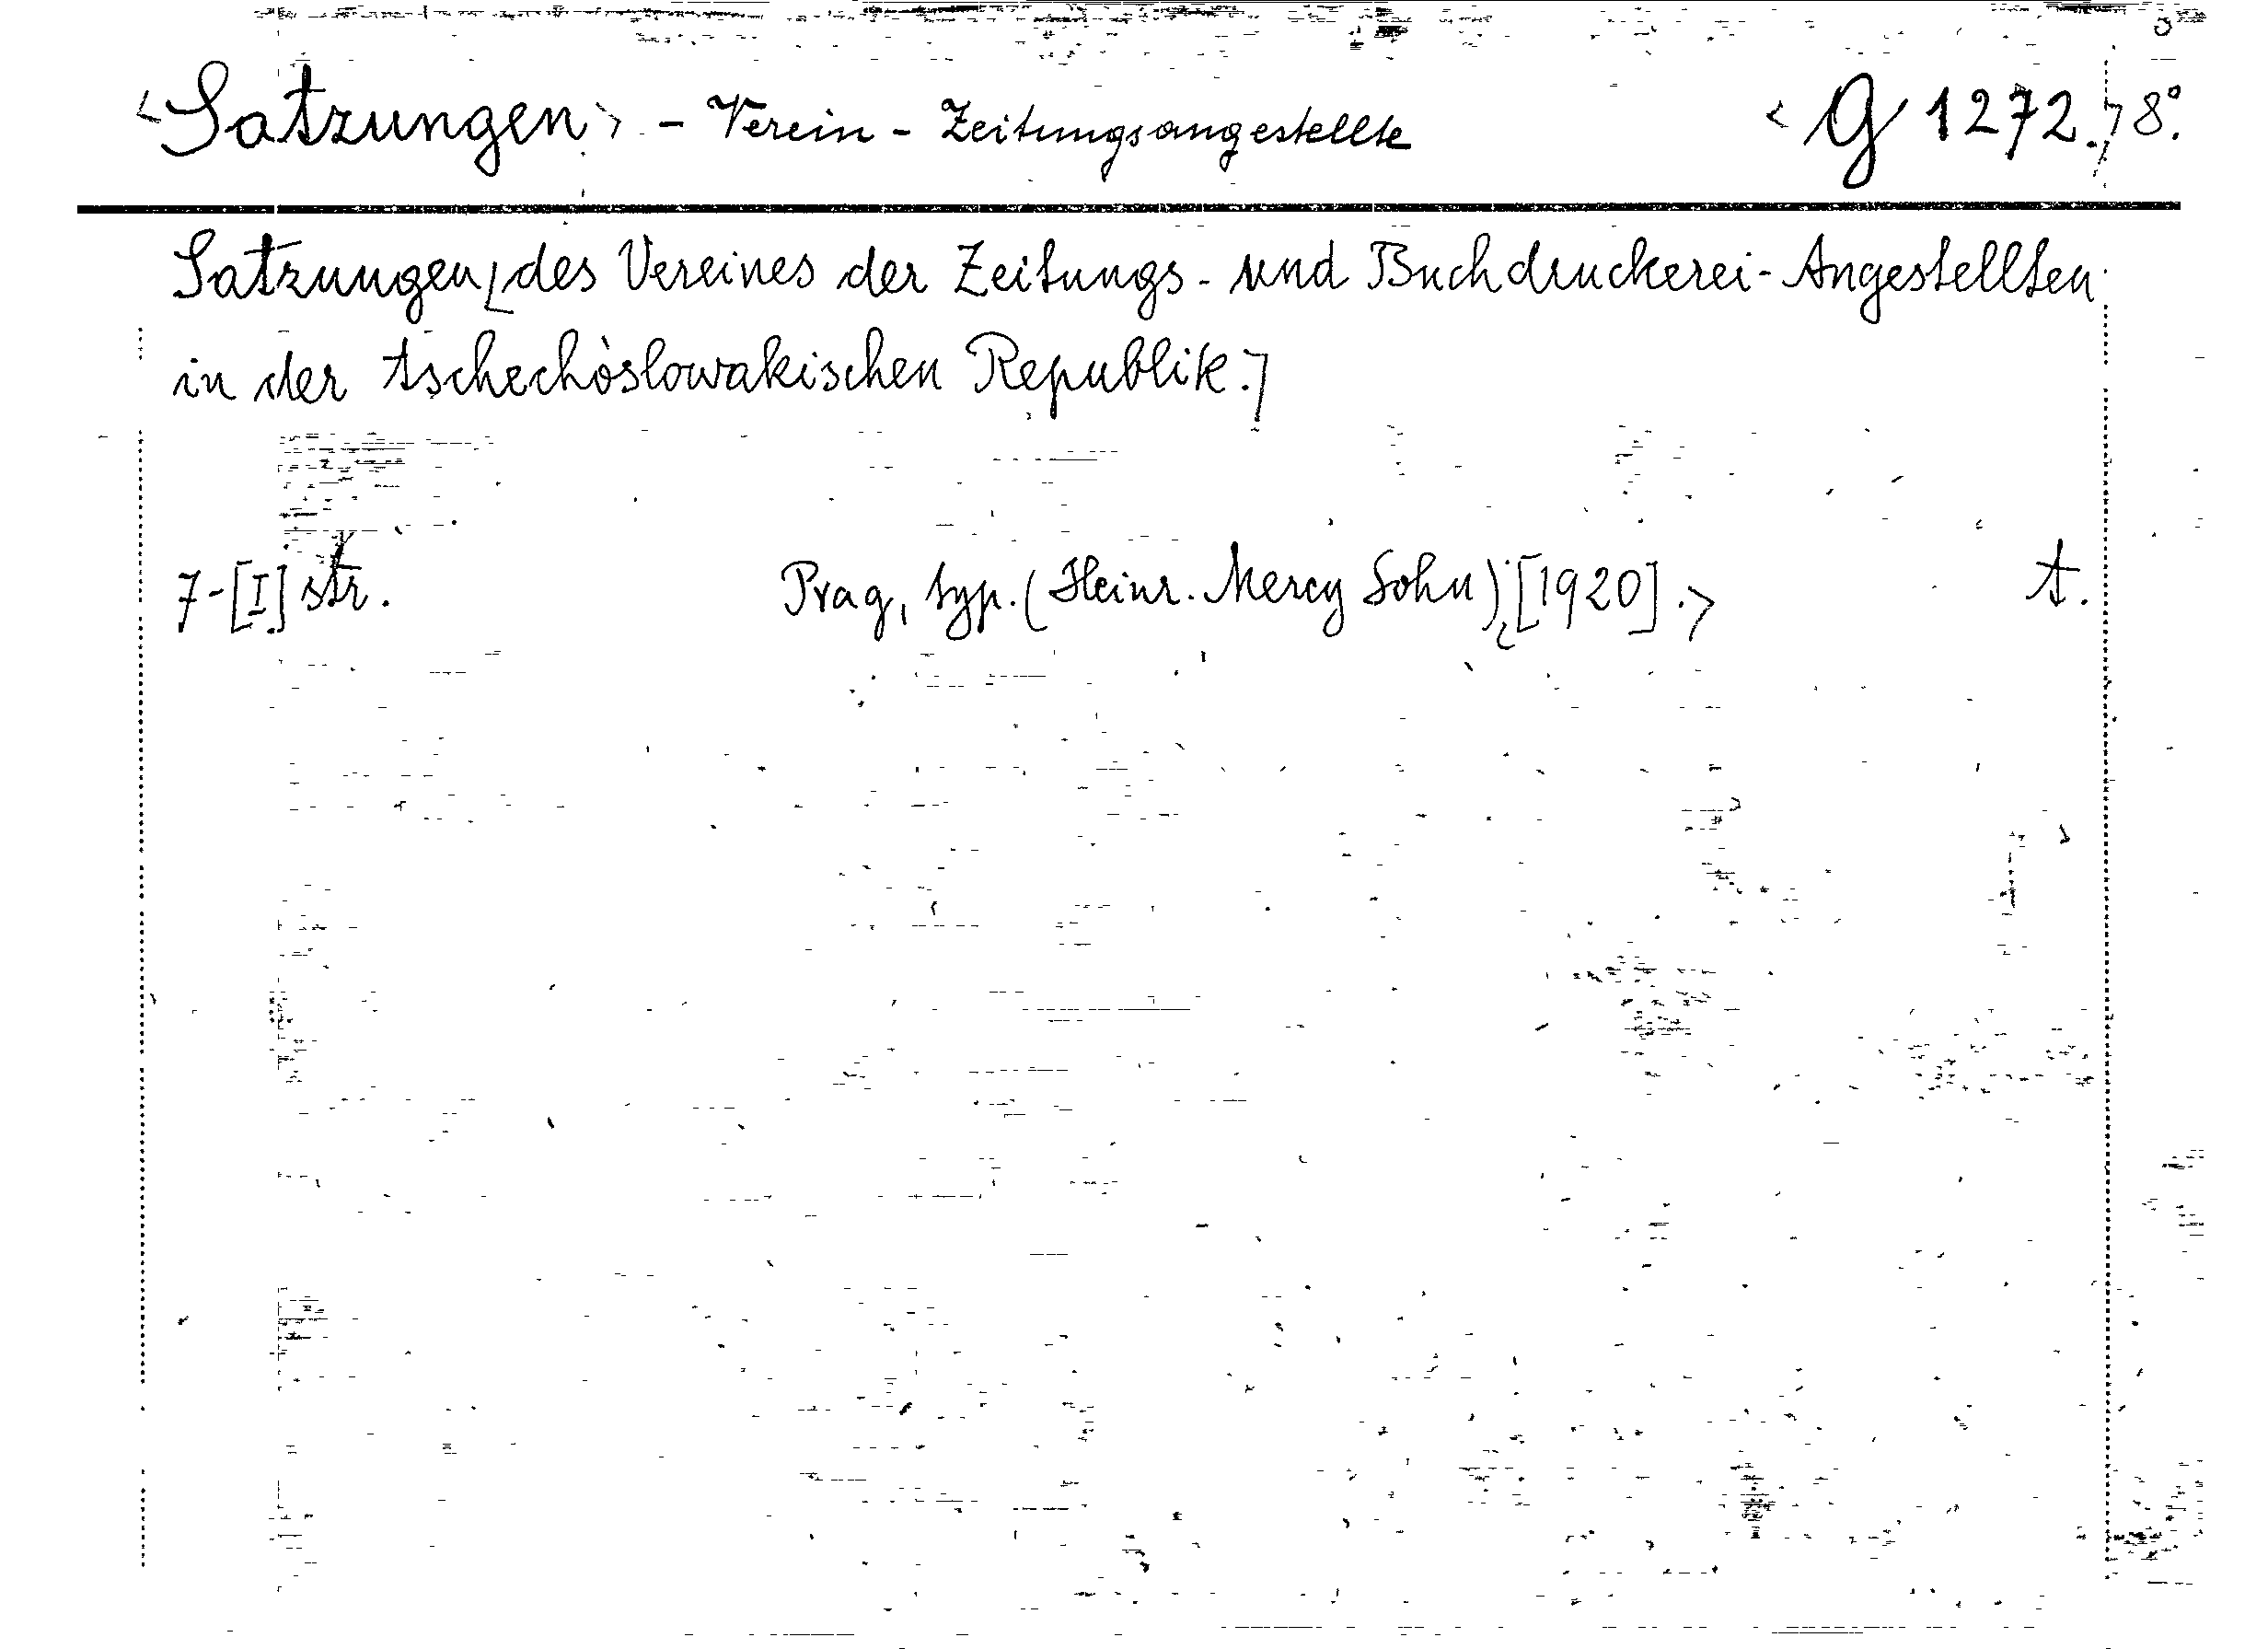 <Satzungen> - Verein - Zeitungsangestellte <G 1272.> 8°.
Satzungen [des Vereines der Zeitungs- und Buchdruckerei-Angestellten
in der tschechoslowakischen Republik.]
7-[I] str. Prag, typ. (Heinr. Mercy Sohn), [1920].> t.